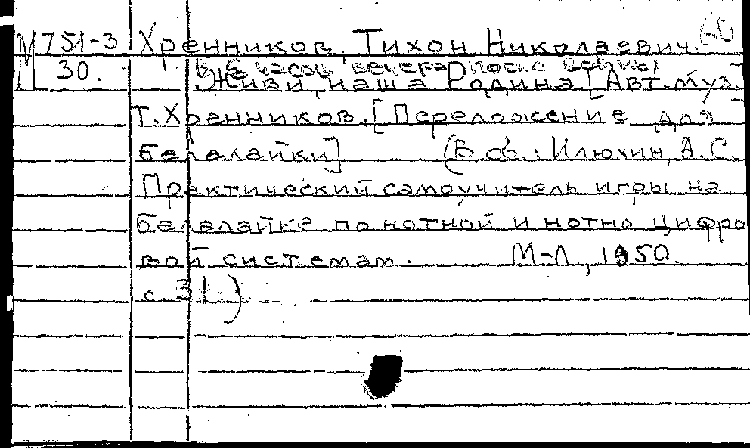 М 751-3 Хренников, Тихон Николаевич.
30. В 6 часов вечера после войны
Живи, наша Родина [Авт. муз.
Т. Хренников. [Переложение для
балалайки] (В сб.: Илюхин, А.С.
Практический самоучитель игры на
балалайке по нотной и нотно цифро
вой системам. М-Л, 1950.
с. 31)